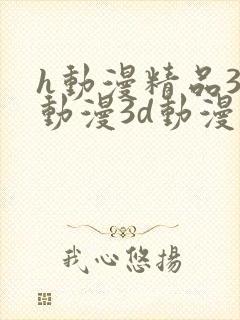 h動漫精品3
動漫3d動漫
我心悠揚